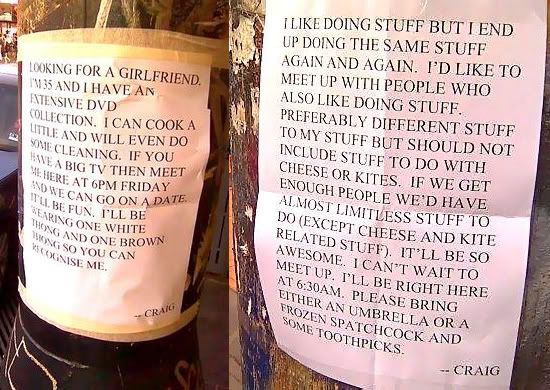 LOOKING FOR A GIRLFRIEND.
I'M 35 AND I HAVE AN
EXTENSIVE DVD
COLLECTION. I CAN COOK A
LITTLE AND WILL EVEN DO
SOME CLEANING. IF YOU
HAVE A BIG TV THEN MEET
ME HERE AT 6PM FRIDAY
AND WE CAN GO ON A DATE.
IT'LL BE FUN. I'LL BE
WEARING ONE WHITE
THONG AND ONE BROWN
THONG SO YOU CAN
RECOGNISE ME.
-- CRAIG
I LIKE DOING STUFF BUT I END
UP DOING THE SAME STUFF
AGAIN AND AGAIN. I'D LIKE TO
MEET UP WITH PEOPLE WHO
ALSO LIKE DOING STUFF.
PREFERABLY DIFFERENT STUFF
TO MY STUFF BUT SHOULD NOT
INCLUDE STUFF TO DO WITH
CHEESE OR KITES. IF WE GET
ENOUGH PEOPLE WE'D HAVE
ALMOST LIMITLESS STUFF TO
DO (EXCEPT CHEESE AND KITE
RELATED STUFF). IT'LL BE SO
AWESOME. I CAN'T WAIT TO
MEET UP. I'LL BE RIGHT HERE
AT 6:30AM. PLEASE BRING
EITHER AN UMBRELLA OR A
FROZEN SPATCHCOCK AND
SOME TOOTHPICKS.
-- CRAIG